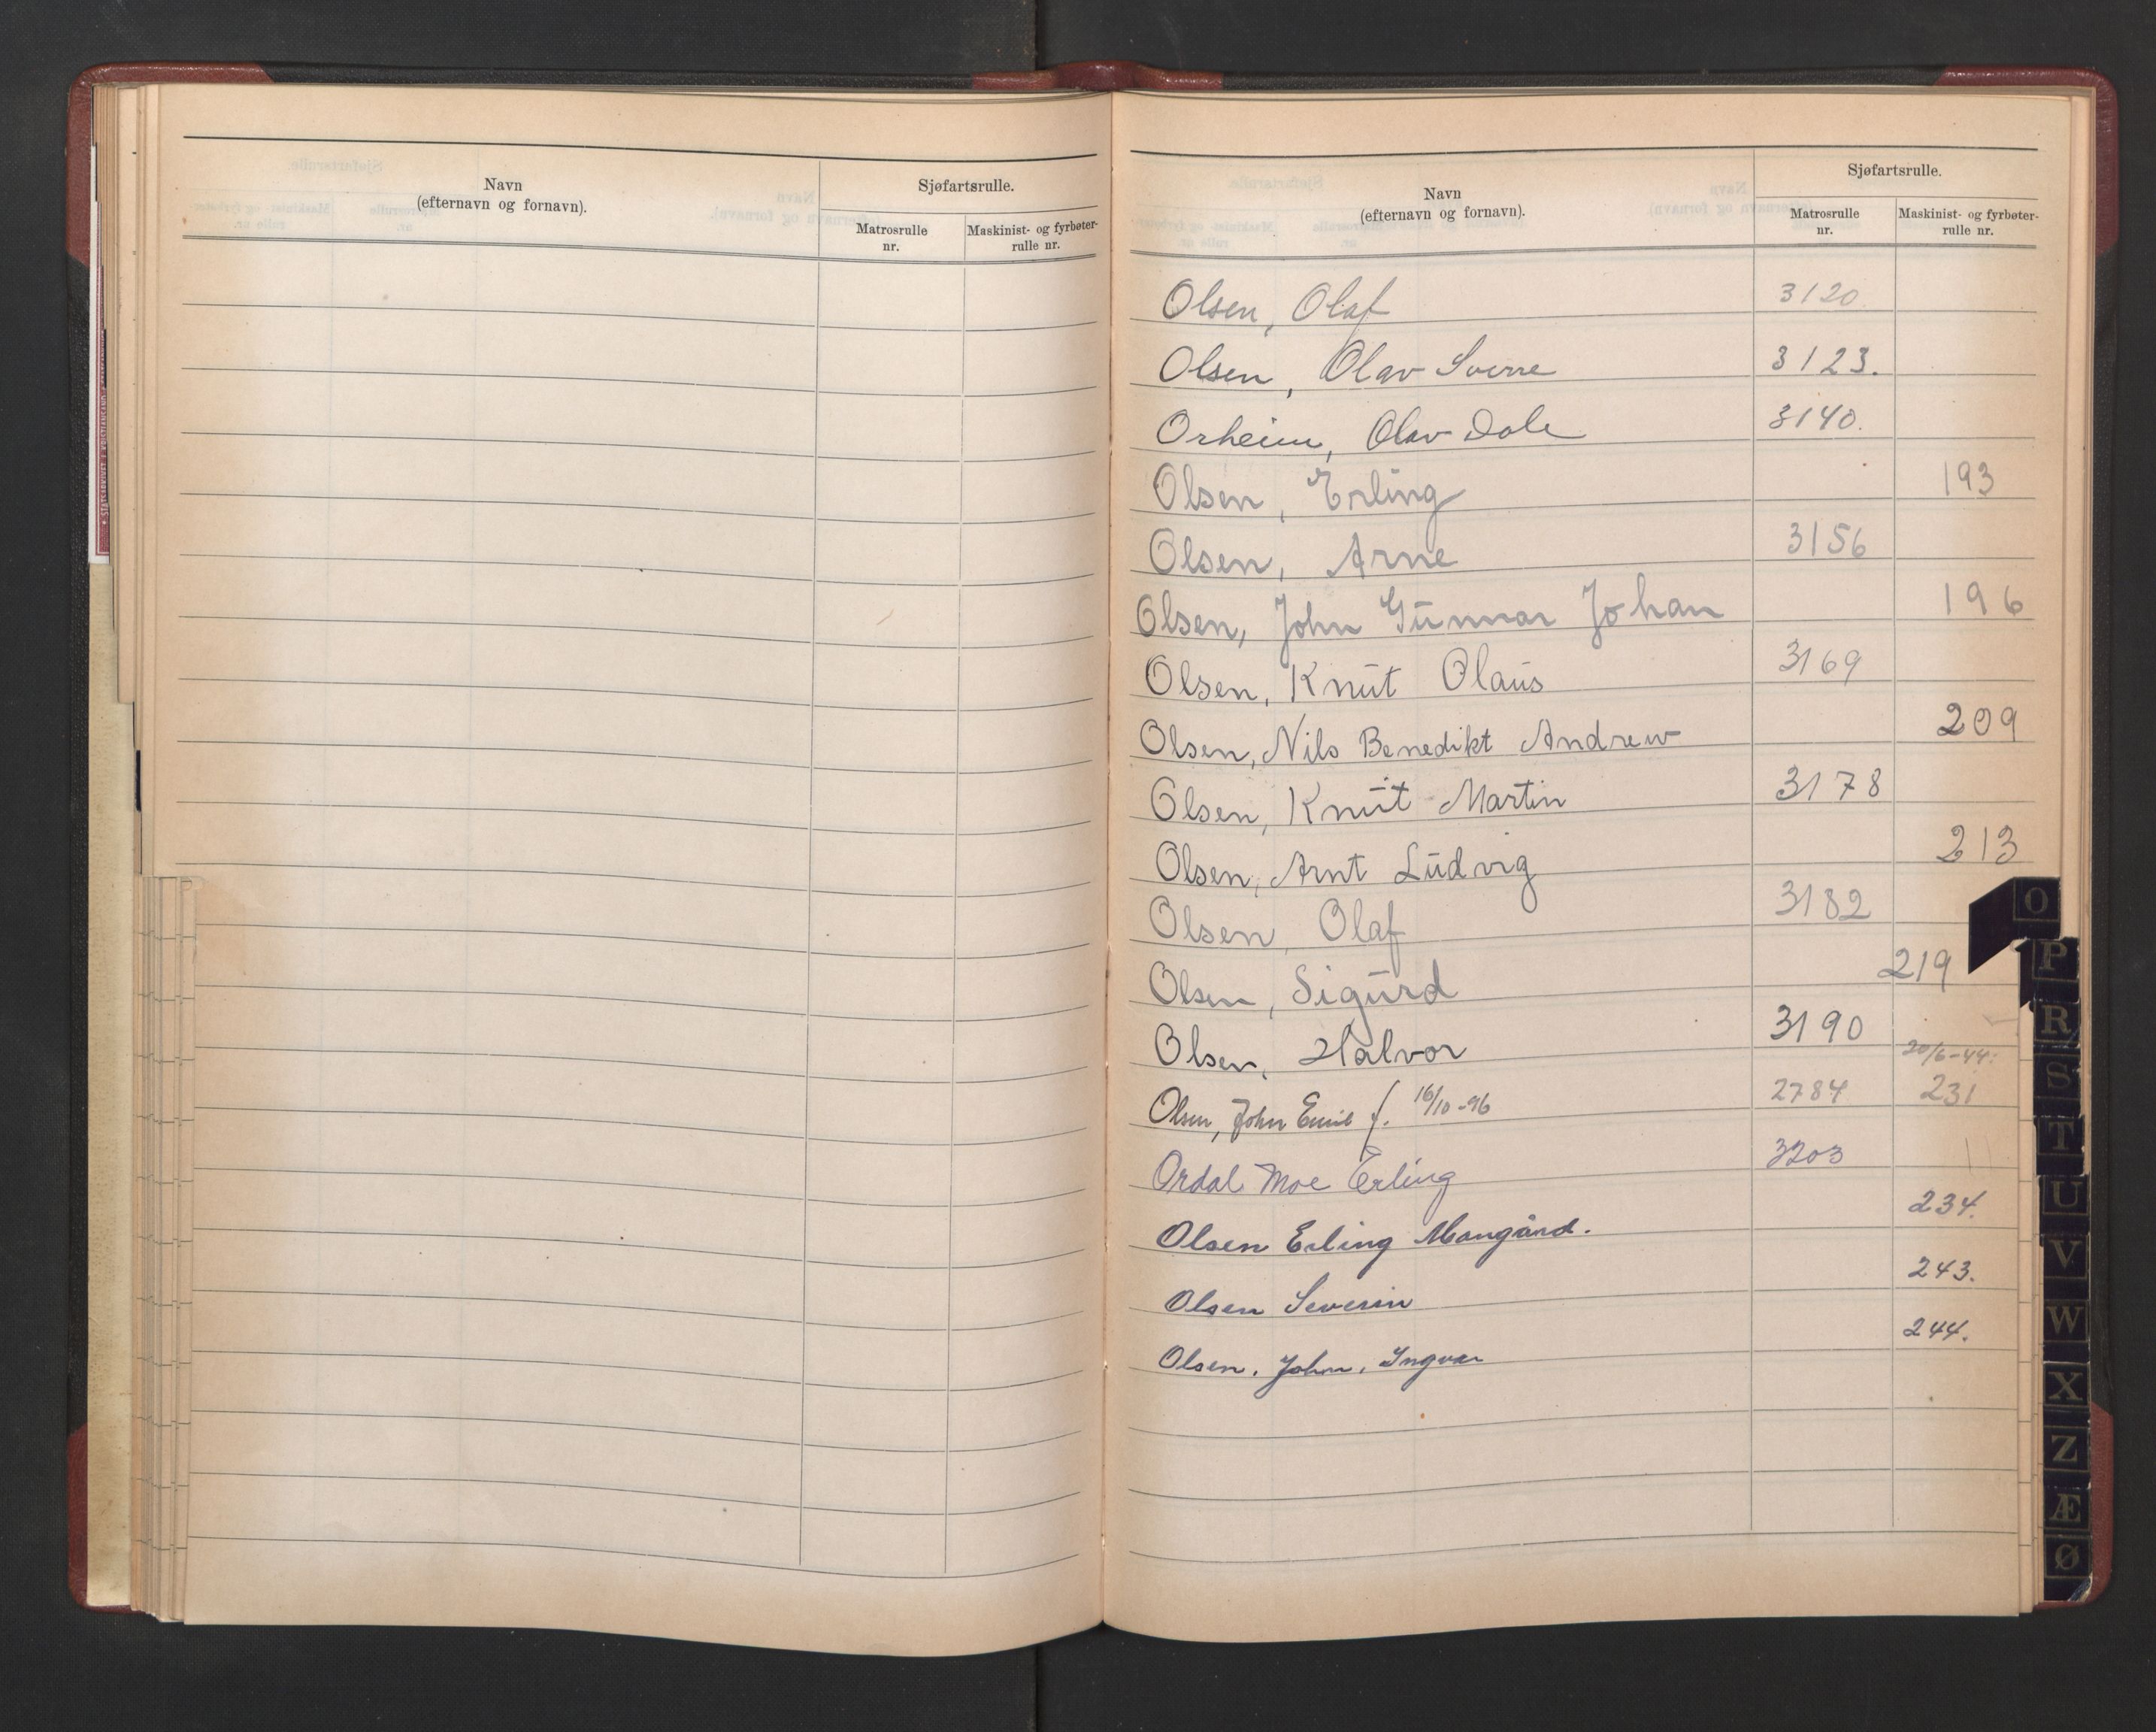 Navn
(efternavn og fornavn).
Sjøfartsrulle.
Matrosrulle
nr.
Maskinist- og fyrbøter-
rulle nr.
Navn
(efternavn og fornavn).
Sjøfartsrulle.
Matrosrulle
nr.
Maskinist- og fyrbøter-
rulle nr.
Olsen, Olaf 3120.
Olsen, Olav Sverre 3123.
Orheim, Olav Dale 3140.
Olsen, Erling 193
Olsen, Arne 3156
Olsen, John Gunnar Johan 196
Olsen, Knut Olaus 3169
Olsen, Nils Benedikt Andrew 209
Olsen, Knut Martin 3178
Olsen, Arnt Ludvig 213
Olsen, Olaf 3182
Olsen, Sigurd 219
Olsen, Halvor 3190
20/6-44.
Olsen, John Emil f. 16/10-96 2784 231
Ordal Moe Erling 3203
Olsen Erling Mangård. 234.
Olsen Severin 243.
Olsen, John, Ingvar 244.
O
P
R
S
T
U
V
W
X
Z
Æ
Ø